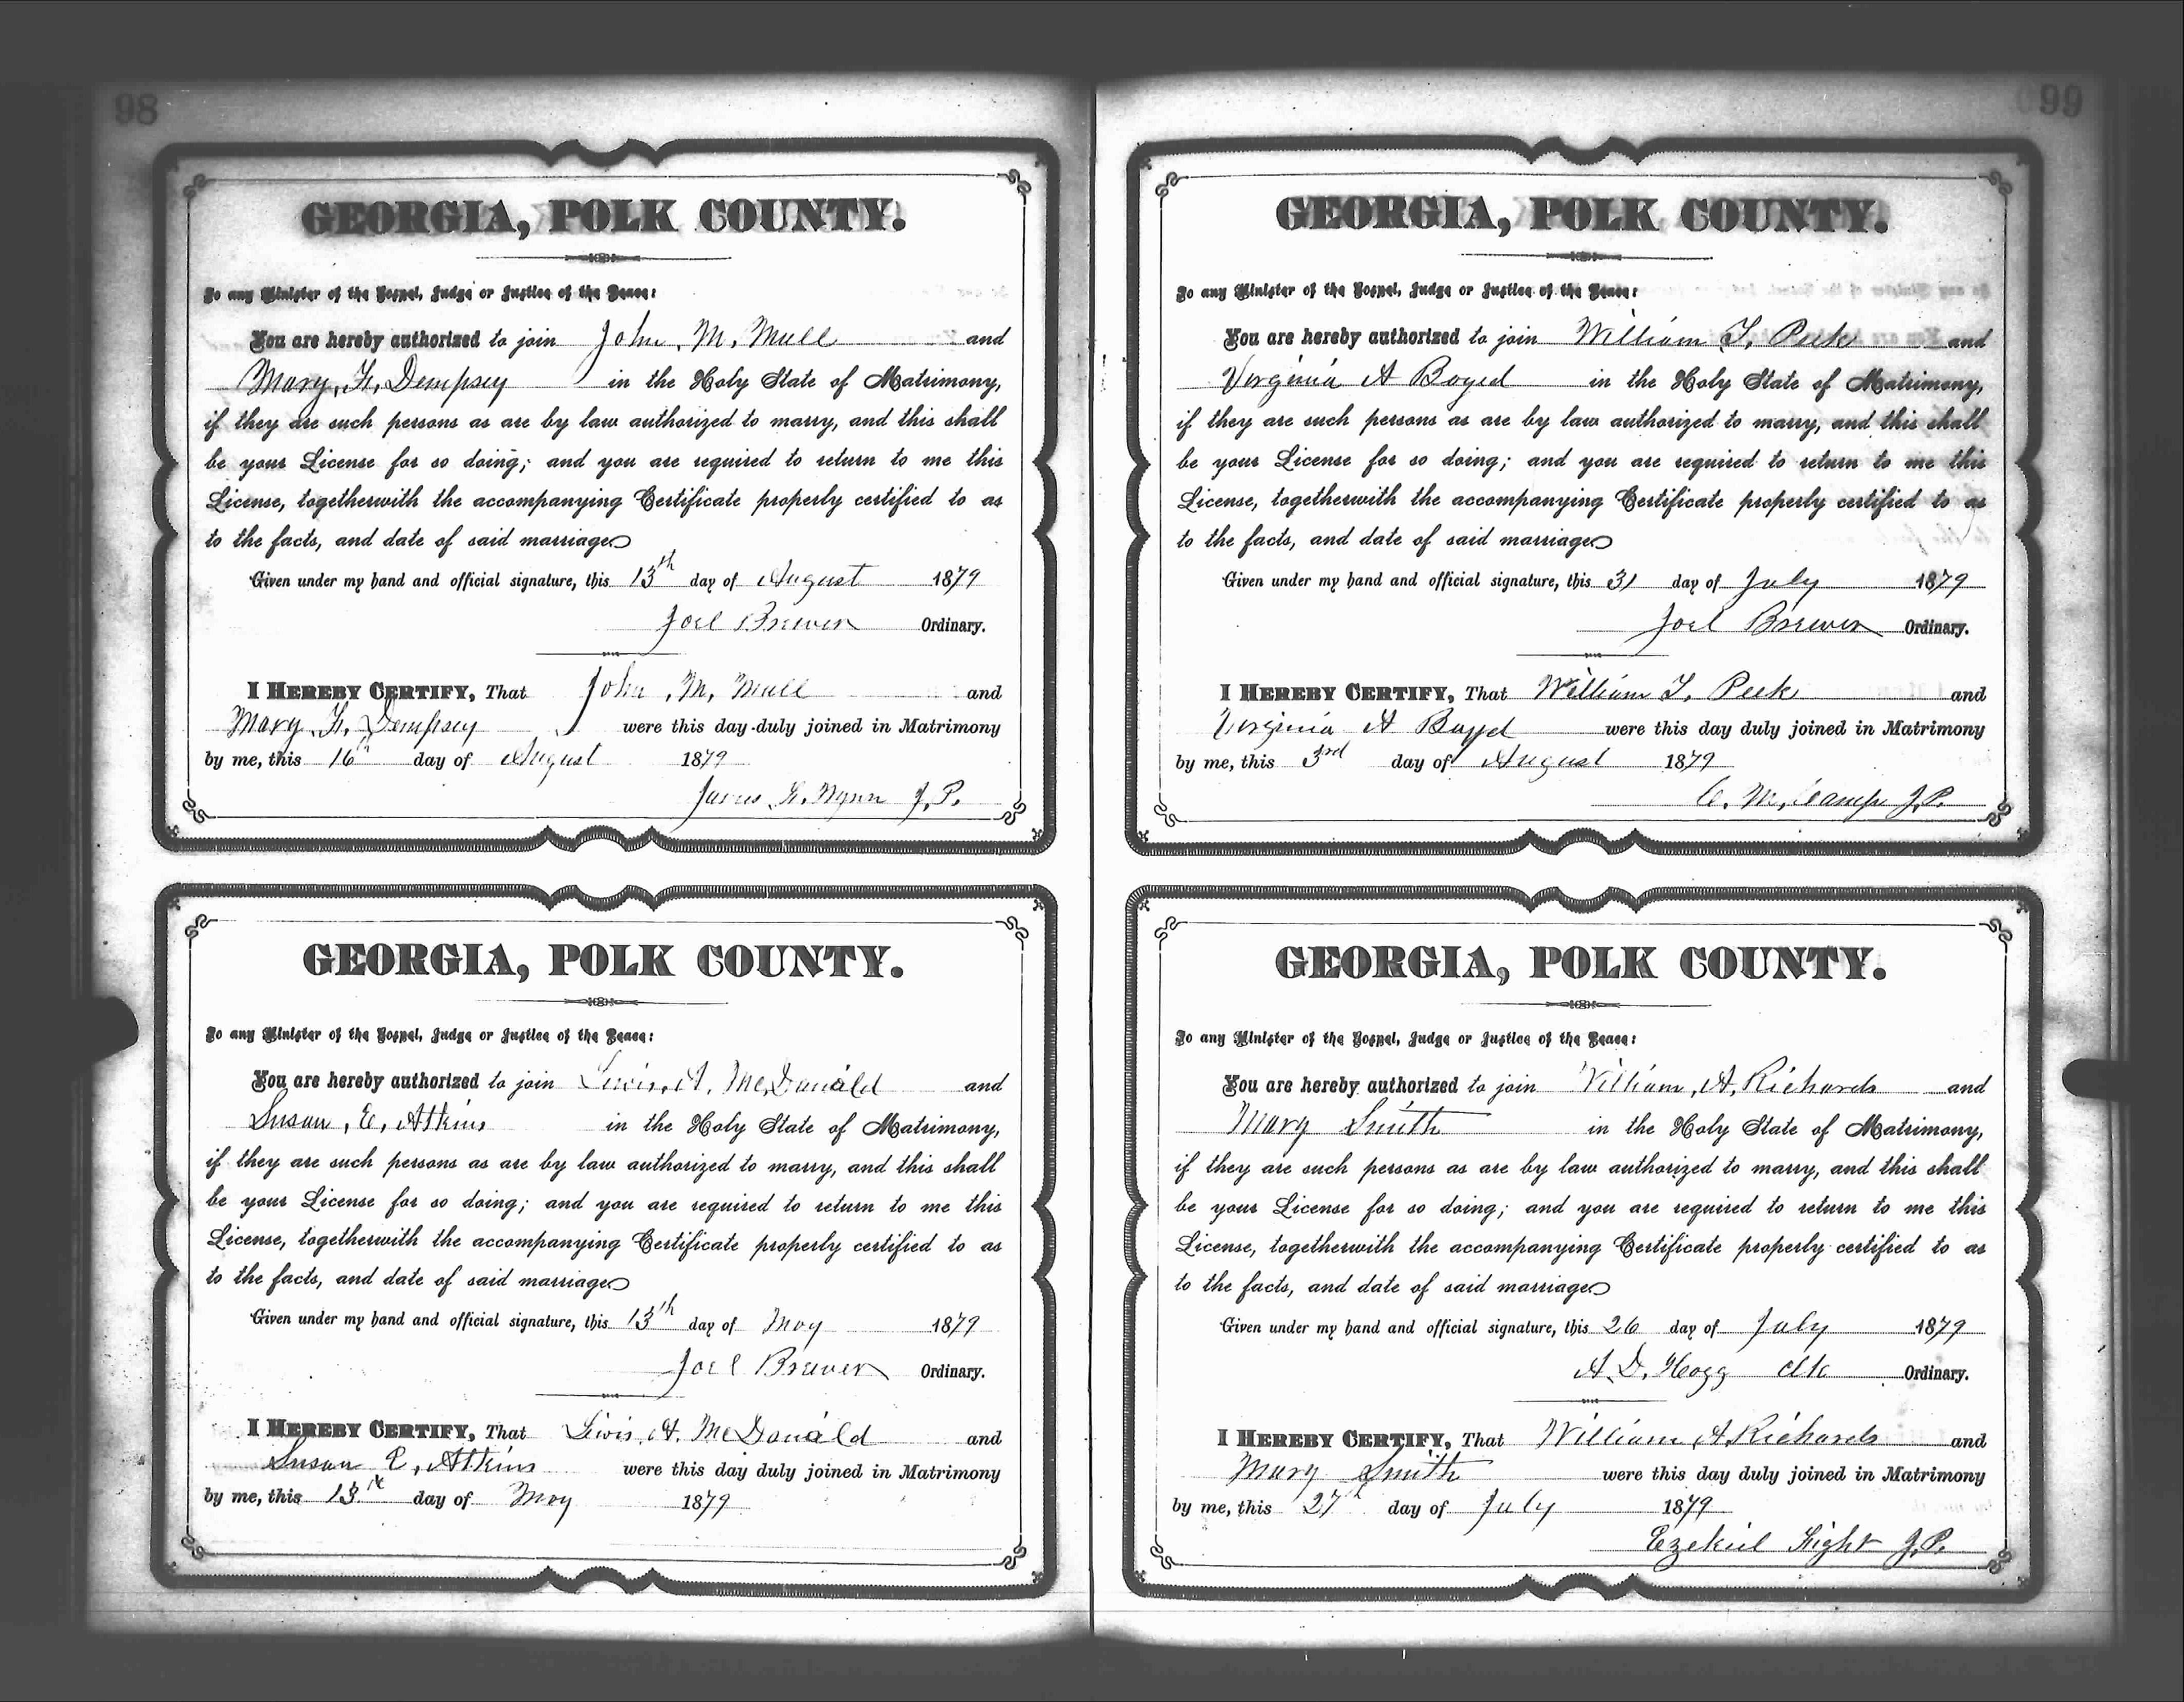 98
GEORGIA, POLK COUNTY.
To any Minister of the Gospel, Judge or Justice of the Peace:
You are hereby authorized to join John, M, Mull and
Mary, F, Dempsey in the Holy State of Matrimony,
if they are such persons as are by law authorized to marry, and this shall
be your License for so doing; and you are required to return to me this
License, togetherwith the accompanying Certificate properly certified to as
to the facts, and date of said marriage
Given under my hand and official signature, this 13th day of August 1879
Joel Brewer Ordinary.
I HEREBY CERTIFY, That John, M, Mull and
Mary, F, Dempsey were this day duly joined in Matrimony
by me, this 16th day of August 1879
Wynn J.P.
GEORGIA, POLK COUNTY.
To any Minister of the Gospel, Judge or Justice of the Peace:
You are hereby authorized to join Lewis, A, McDonald and
Susan, E, Atkins in the Holy State of Matrimony,
if they are such persons as are by law authorized to marry, and this shall
be your License for so doing; and you are required to return to me this
License, togetherwith the accompanying Certificate properly certified to as
to the facts, and date of said marriage
Given under my hand and official signature, this 13th day of May 1879
Joel Brewer Ordinary.
I HEREBY CERTIFY, That Lewis, A. McDonald and
Susan E, Atkins were this day duly joined in Matrimony
by me, this 13th day of May 1879
99
GEORGIA, POLK COUNTY.
To any Minister of the Gospel, Judge or Justice of the Peace:
You are hereby authorized to join William T. Peek and
Virginia A Boyed in the Holy State of Matrimony,
if they are such persons as are by law authorized to marry, and this shall
be your License for so doing; and you are required to return to me this
License, togetherwith the accompanying Certificate properly certified to as
to the facts, and date of said marriage
Given under my hand and official signature, this 31 day of July 1879
Joel Brewer Ordinary.
I HEREBY CERTIFY, That William T. Peek and
Virginia A Boyed were this day duly joined in Matrimony
by me, this 3rd day of August 1879
C. M, Camp J.P.
GEORGIA, POLK COUNTY.
To any Minister of the Gospel, Judge or Justice of the Peace:
You are hereby authorized to join William, A, Richards and
Mary Smith in the Holy State of Matrimony,
if they are such persons as are by law authorized to marry, and this shall
be your License for so doing; and you are required to return to me this
License, togetherwith the accompanying Certificate properly certified to as
to the facts, and date of said marriage
Given under my hand and official signature, this 26 day of July 1879
A. D. Hogg clk Ordinary.
I HEREBY CERTIFY, That William A Richards and
Mary Smith were this day duly joined in Matrimony
by me, this 27th day of July 1879
Ezekiel Hight J.P.